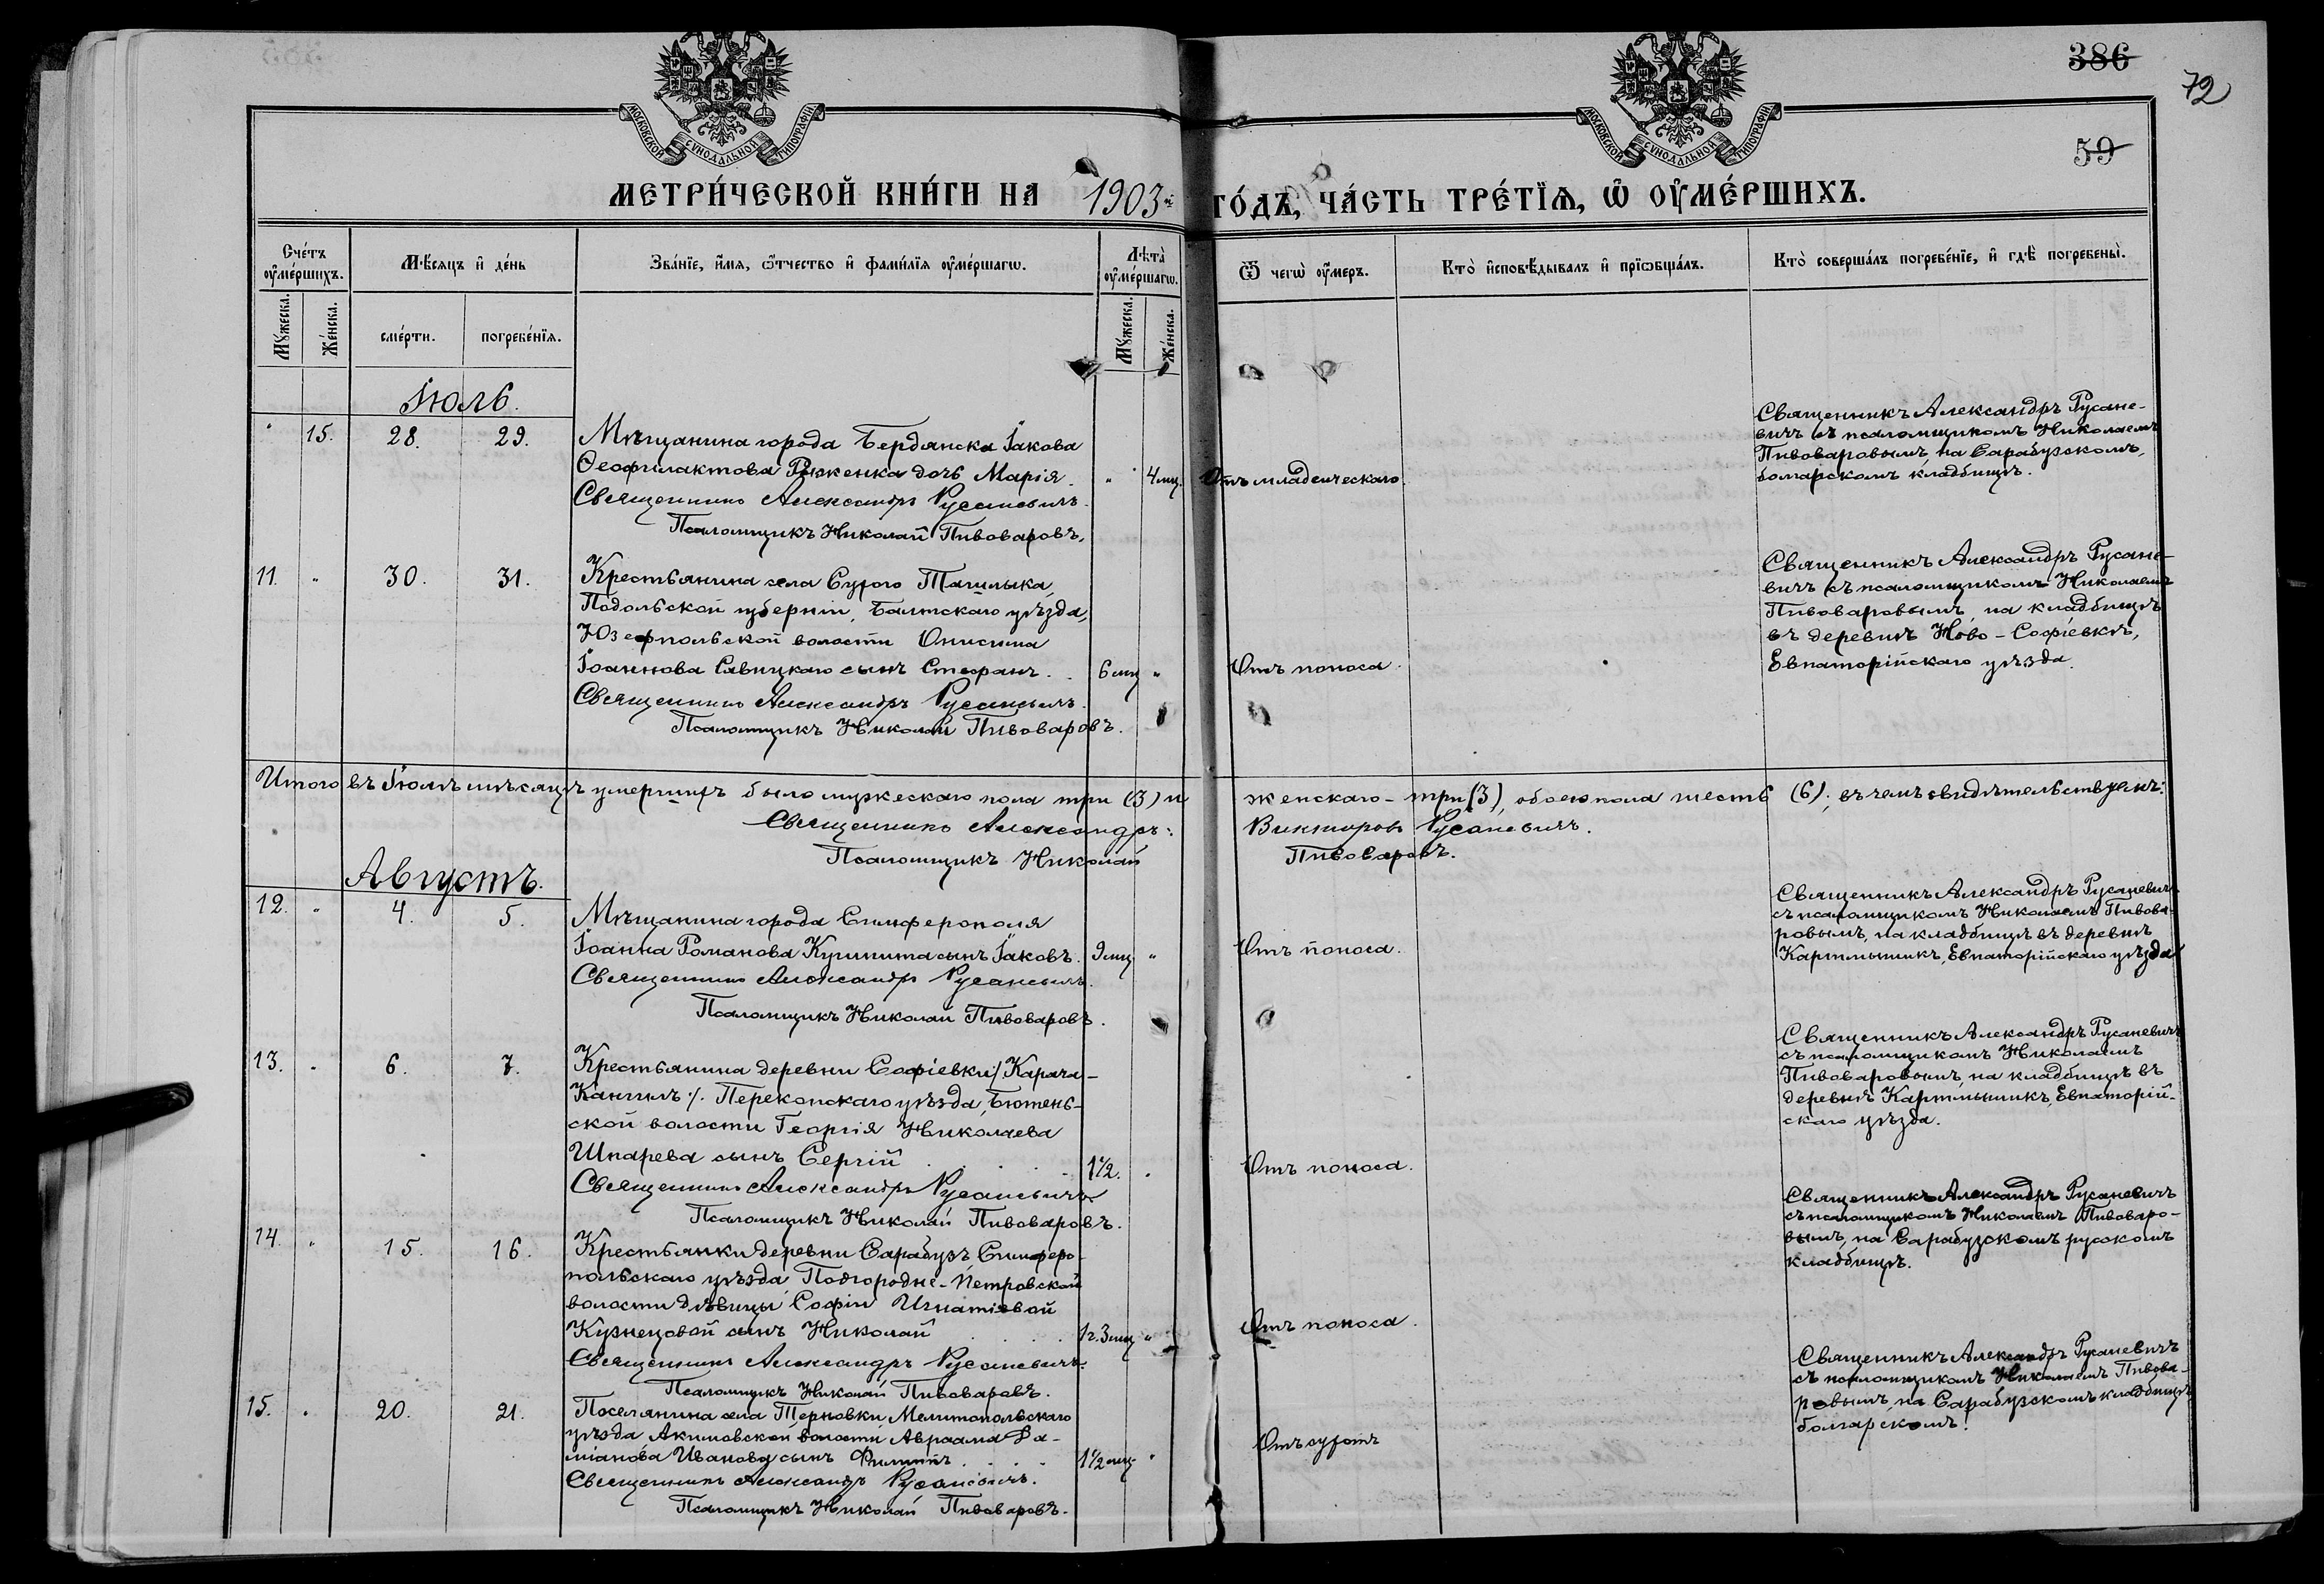 386
72
59
МОСКОВСКОЙ СУНОДАЛЬНОЙ ТИПОГРАФІИ
МОСКОВСКОЙ СУНОДАЛЬНОЙ ТИПОГРАФІИ
МЕТРИ́ЧЕСКОЙ КНИ́ГИ НА 1903й ГО́ДЪ, ЧА́СТЬ ТРЕ́ТЇѦ, Ѡ҆ ОУ҆МЕ́РШИХЪ.
Сче́тъ оу҆ме́ршихъ.
Мꙋ́жеска.
Же́нска.
Мѣ́сѧцъ и҆ де́нь
сме́рти.
погребе́нїѧ.
Зва́нїе, и҆́мѧ, ѻ҆́тчество и҆ фами́лїѧ оу҆ме́ршагѡ.
Лѣ́та оу҆ме́ршагѡ.
Мꙋ́жеска.
Же́нска.
Ѿ чегѡ̀ оу҆́меръ.
Кто̀ и҆сповѣ́дывалъ и҆ прїѡбща́лъ.
Кто̀ соверша́лъ погребе́нїе, и҆ гдѣ̀ погребены̀.
Іюль.
" 15. 28. 29.
Мѣщанина города Бердянска Іакова
Ѳеофилактова Рюженка дочь Марія. " 4 мц. Отъ младенческаго.
Священникъ Александръ Русаневичъ.
Псаломщикъ Николай Пивоваровъ.
Священникъ Александръ Русане-
вичъ съ псаломщикомъ Николаемъ
Пивоваровымъ, на Сарабузскомъ,
болгарскомъ кладбищѣ.
11. " 30. 31.
Крестьянина села Сухого Ташлыка,
Подольской губерніи, Балтскаго уѣзда,
Юзефпольской волости Онисима
Іоаннова Савицкаго сынъ Стефанъ. 6 мц " Отъ поноса.
Священникъ Александръ Русаневичъ.
Псаломщикъ Николай Пивоваровъ.
Священникъ Александръ Русане-
вичъ съ псаломщикомъ Николаемъ
Пивоваровымъ на кладбищѣ
въ деревнѣ Ново-Софіевкѣ,
Евпаторійскаго уѣзда.
Итого въ Іюлѣ мѣсяцѣ умершихъ было мужескаго пола три (3) и женскаго - три (3), обоего пола шесть (6), въ чемъ свидѣтельствуемъ:
Священникъ Александръ Викторовъ Русаневичъ.
Псаломщикъ Николай Пивоваровъ.
Августъ.
12. " 4. 5.
Мѣщанина города Симферополя
Іоанна Романова Кушнита сынъ Іаковъ. 9 мц " Отъ поноса.
Священникъ Александръ Русаневичъ.
Псаломщикъ Николай Пивоваровъ.
Священникъ Александръ Русаневичъ
съ псаломщикомъ Николаемъ Пивова-
ровымъ, на кладбищѣ въ деревнѣ
Картмышикъ, Евпаторійскаго уѣзда
13. " 6. 7.
Крестьянина деревни Софіевки /: Карача-
Кангилъ :/. Перекопскаго уѣзда, Бютень-
ской волости Георгія Николаева
Шпарева сынъ Сергій 1½. " Отъ поноса.
Священникъ Александръ Русаневичъ
Псаломщикъ Николай Пивоваровъ.
Священникъ Александръ Русаневичъ
съ псаломщикомъ Николаемъ
Пивоваровымъ, на кладбищѣ въ
деревнѣ Картмышикъ, Евпаторій-
скаго уѣзда.
14. " 15. 16.
Крестьянки деревни Сарабузъ Симферо-
польскаго уѣзда Подгородне-Петровской
волости дѣвицы Софіи Игнатіевой
Кузнецовой сынъ Николай 1 г. 3 мц " Отъ поноса.
Священникъ Александръ Русаневичъ.
Псаломщикъ Николай Пивоваровъ.
Священникъ Александръ Русаневичъ
съ псаломщикомъ Николаемъ Пивоваро-
вымъ, на Сарабузскомъ русскомъ
кладбищѣ.
15. " 20. 21.
Поселянина села Терновки Мелитопольскаго
уѣзда Акимовской волости Авраама Да-
міанова Иванова сынъ Филиппъ 1½ мц. " Отъ сухотъ
Священникъ Александръ Русаневичъ.
Псаломщикъ Николай Пивоваровъ.
Священникъ Александръ Русаневичъ
съ псаломщикомъ Николаемъ Пивова-
ровымъ, на Сарабузскомъ кладбищѣ
болгарскомъ.